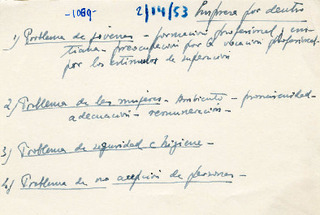 -1089- 2/14/53 Empresa por dentro
1) Problema de jóvenes - formación profesional y cris
tiana - preocupación por la vocación profesional -
por los estímulos de superación
2) Problema de las mujeres - Ambiente - promiscuidad -
adecuación - remuneración -
3) Problema de seguridad e higiene -
4) Problema de no acepción de personas -